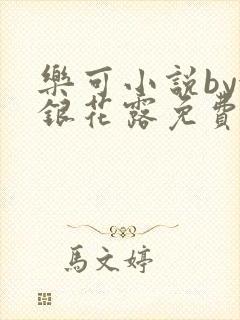 樂可小說by
銀花露免費
馬文婷